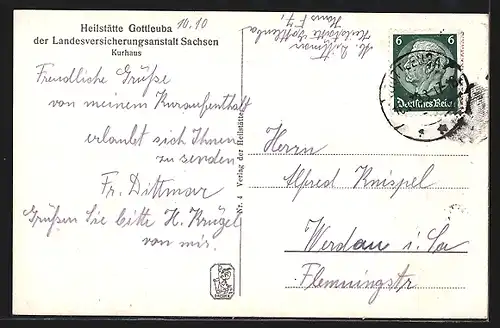 Heilstätte Gottleuba
der Landesversicherungsanstalt Sachsen
Kurhaus
10.10
Freudliche Grüße
von meinem Kuraufenthalt
erlaubt sich Ihnen
zu senden
Fr. Dittmar
Grüßen Sie bitte H. Krügel
von mir.
Nr. 4 Verlag der Heilstätte
Heilstätte Gottleuba
Haus F 7,
6 6
Deutsches Reich
Herrn
Alfred Knispel
Werdau i. Sa
Flemmingstr